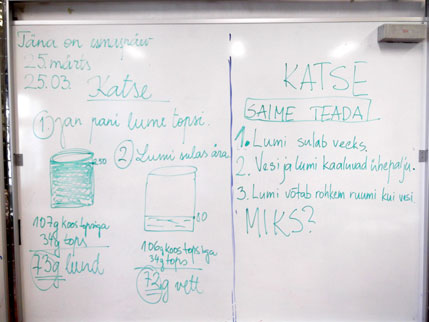 Täna on esmaspäev
25. märts
25.03.
Katse
1. Jan pani lume topsi.
250
107g koos topsiga
34g tops
73g lund
2. Lumi sulas ära.
80
106g koos topsiga
34g tops
72g vett
KATSE
SAIME TEADA
1. Lumi sulab veeks.
2. Vesi ja lumi kaaluvad ühepalju.
3. Lumi võtab rohkem ruumi kui vesi.
MIKS?